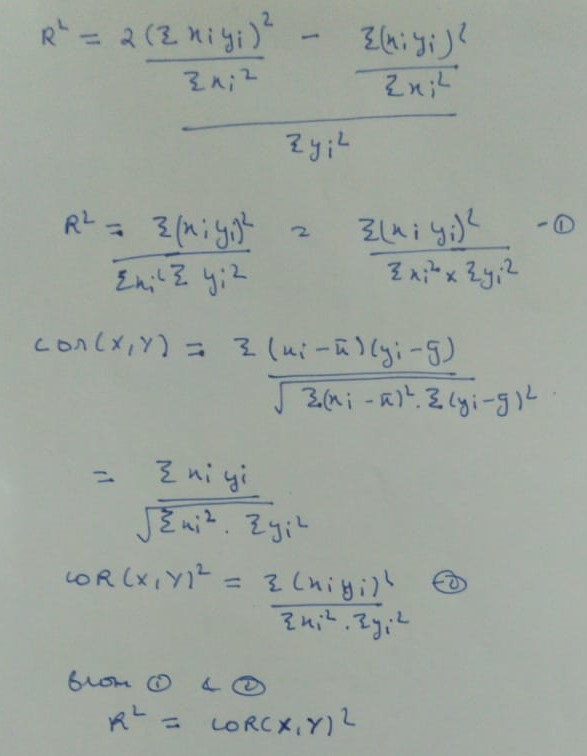 R² = 2(Σxiyi)²/Σxi² - Σ(xiyi)²/Σxi²
Σyi²
R² = Σ(xiyi)²/Σxi²Σyi² = Σ(xiyi)²/Σxi² × Σyi² - ①
cor(X,Y) = Σ(xi - x̄)(yi - ȳ)/√Σ(xi - x̄)².Σ(yi - ȳ)²
= Σxiyi/√Σxi².Σyi²
COR(X,Y)² = Σ(xiyi)²/Σxi².Σyi² - ②
from ① & ②
R² = COR(X,Y)²